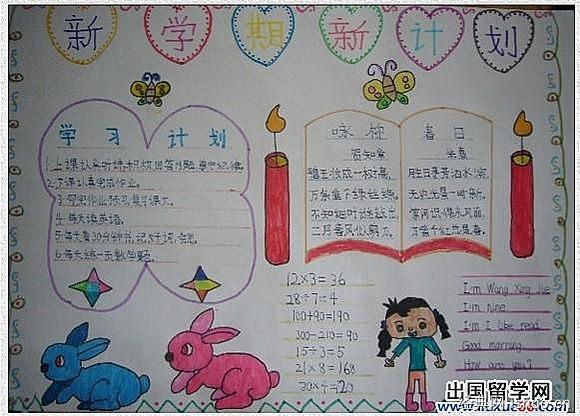 新学期新计划
学习计划
1.上课认真听讲,积极回答问题,遵守纪律。
2.下课认真完成作业。
作业预习,复习课文。
4.每天读英语。
5.每天看30分钟书,记好词、佳句。
6.每天练一页数学题。
咏柳
贺知章
碧玉妆成一树高,
万条垂下绿丝绦。
不知细叶谁裁出,
二月春风似剪刀。
春日
朱熹
胜日寻芳泗水滨,
无边光景一时新。
等闲识得东风面,
万紫千红总是春。
12×3=36
28÷7=4
100+90=190
300-210=90
15÷3=5
21×8=168
30×4=120
I'm Wang Xing
I'm nine
I'm I like read
Good morning
How are you?
出国留学网